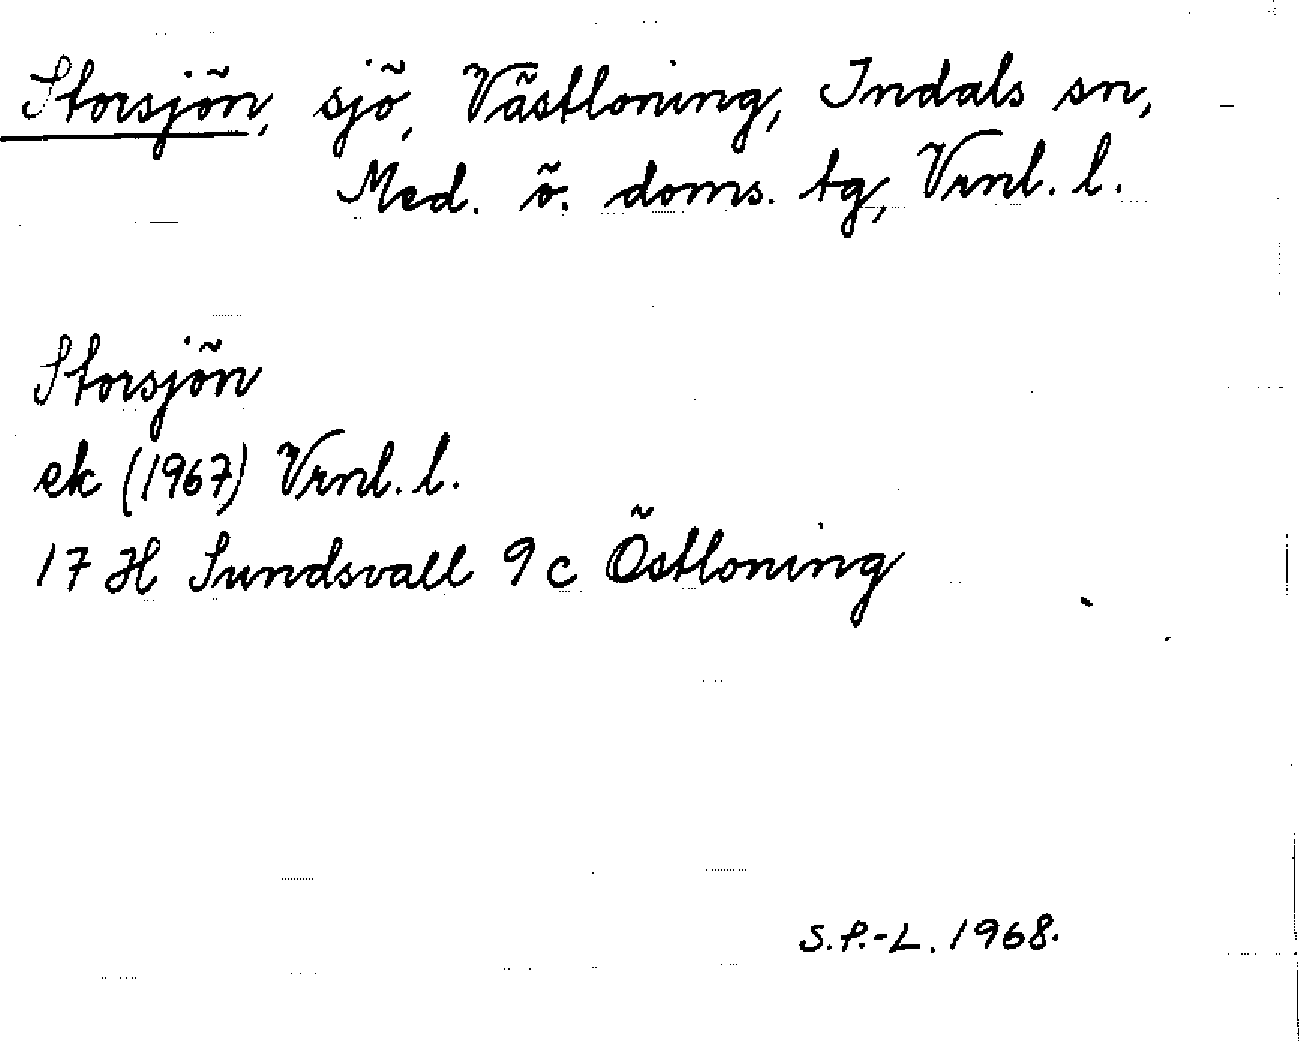 Storsjön, sjö, Västloning, Indals sn,
Med. ö. doms. tg, Vrnl. l.
Storsjön
ek (1967) Vrnl. l.
17 H Sundsvall 9 c Östloning
S.P.-L. 1968.